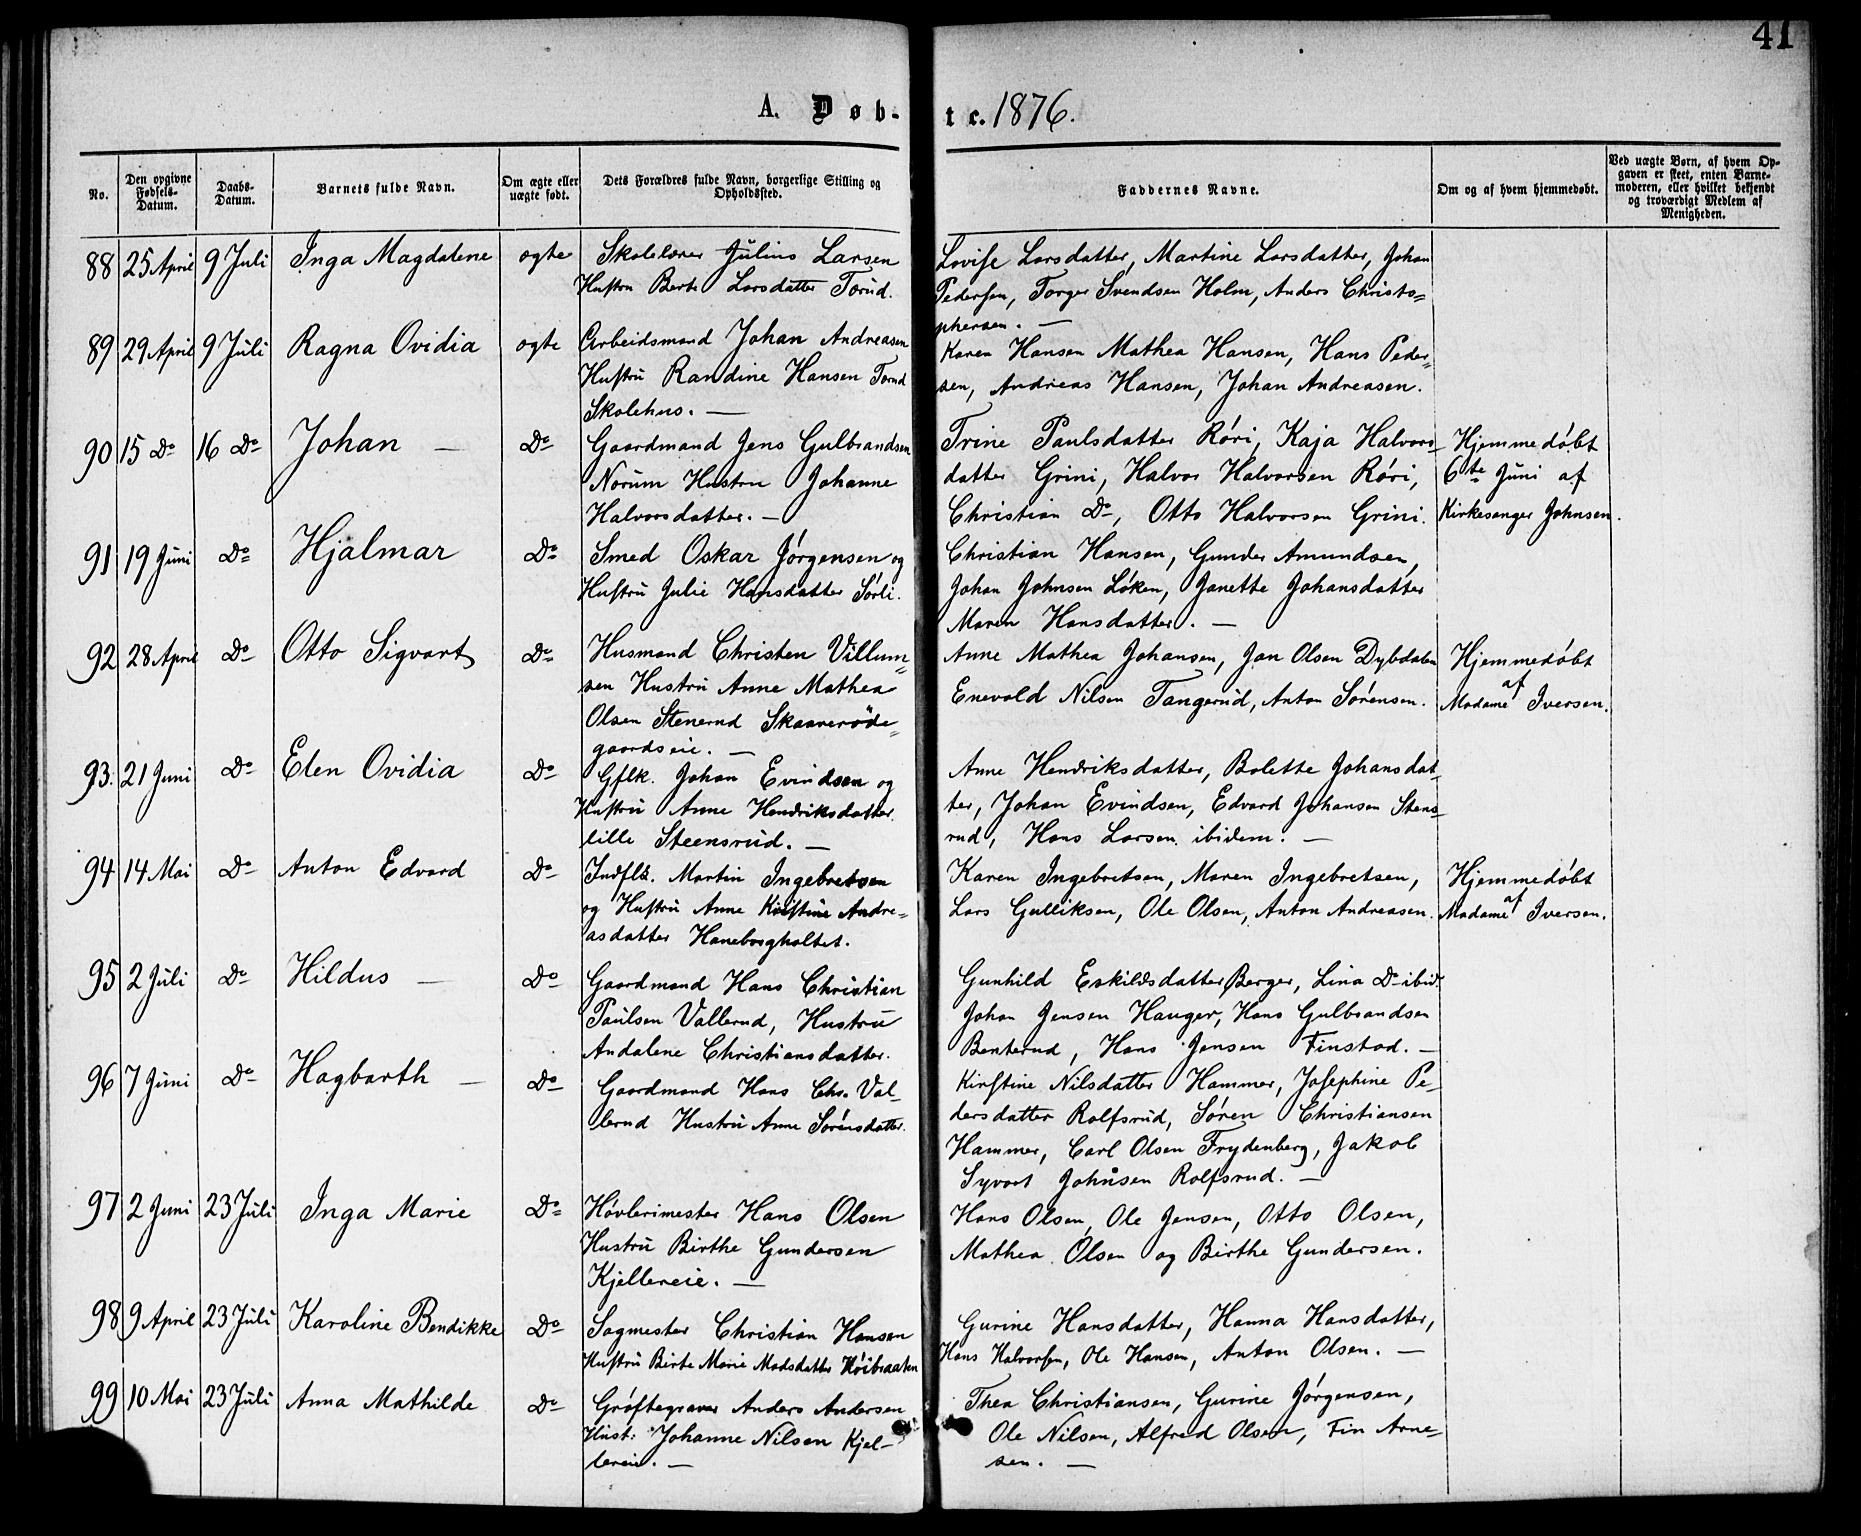 41
A. Døb-te. 1876.
No.
Den opgivne Fødsels-Datum.
Daabs-Datum.
Barnets fulde Navn.
Om ægte eller uægte født.
Dets Forældres fulde Navn, borgerlige Stilling og Opholdssted.
Faddernes Navne.
Om og af hvem hjemmedøbt.
Ved uægte Børn, af hvem Opgaven er skeet, enten Barnemoderen, eller hvilket bekjendt og troværdigt Medlem af Menigheden.
88 25 April 9 Juli Inga Magdalene ægte
Skolelærer Julius Larsen
Hustru Berte Larsdatter Torud.
Lovise Larsdatter, Martine Larsdatter, Johan
Pedersen, Torger Svendsen Holm, Anders Christo=
phersen. —
89 29 April 9 Juli Ragna Ovidia ægte
Arbeidsmand Johan Andreasen
Hustru Randine Hansen Torud
Skolehus. —
Karen Hansen Mathea Hansen, Hans Peder=
sen, Andreas Hansen, Johan Andreasen.
90 15 Do 16 Do Johan — Do
Gaardmand Jens Gulbrandsen
Norum Hustru Johanne
Halvorsdatter. —
Trine Paulsdatter Röri, Kaja Halvors=
datter Grini, Halvor Halvorsen Röri,
Christian Do, Otto Halvorsen Grini.
Hjemmedöbt
6te Juni af
Kirkesanger Johnsen.
91 19 Juni Do Hjalmar Do
Smed Oskar Jörgensen og
Hustru Julie Hansdatter Sörli.
Christian Hansen, Gunder Amundsen,
Johan Johnsen Löken, Janette Johansdatter
Maren Hansdatter. —
92 28 April Do Otto Sigvart Do
Husmand Christen Villum=
sen Hustru Anne Mathea
Olsen Stenerud Skaareröde=
gaardseie. —
Anne Mathea Johansen, Jan Olsen Dybdalen
Enevold Nilsen Tangerud, Anton Sörensen.
Hjemmedöbt
af
Madame Iversen.
93. 21 Juni Do Elen Ovidia Do
Gflk. Johan Evindsen og
Hustru Anne Hendriksdatter
lille Steensrud. —
Anne Hendriksdatter, Bolette Johansdat=
ter, Johan Evindsen, Edvard Johansen Stens=
rud, Hans Larsen ibidem. —
94 14 Mai Do Anton Edvard Do
Indflk. Martin Ingebretsen
og Hustru Anne Kirstine Andre=
asdatter Haneborgholtet.
Karen Ingebretsen, Maren Ingebretsen,
Lars Gulliksen, Ole Olsen, Anton Andreasen.
Hjemmedöbt
af
Madame Iversen.
95 2 Juli Do Hildus — Do
Gaardmand Hans Christian
Paulsen Vallerud, Hustru
Andalene Christiansdatter.
Gunhild Eskildsdatter Berger, Lina Do ibid.
Johan Jensen Hauger, Hans Gulbrandsen
Benterud, Hans Jensen Finstad. —
96 7 Juni Do Hagbarth — Do
Gaardmand Hans Chr. Val=
lerud Hustru Anne Sörensdatter.
Kirstine Nilsdatter Hammer, Josephine Pe=
dersdatter Rolfsrud, Sören Christiansen
Hammer, Carl Olsen Frydenberg, Jakob
Syvart Johnsen Rolfsrud. —
97 2 Juni 23 Juli Inga Marie Do
Hövlerimester Hans Olsen
Hustru Birthe Gundersen
Kjellereie. —
Hans Olsen, Ole Jensen, Otto Olsen,
Mathea Olsen og Birthe Gundersen.
98 9 April 23 Juli Karoline Bendikke Do
Sagmester Christian Hansen
Hustru Birte Marie Madsdatter Höibraaten
Gurine Hansdatter, Hanna Hansdatter,
Hans Halvorsen, Ole Hansen, Anton Olsen. —
99 10 Mai 23 Juli Anna Mathilde Do
Gröftegraver Anders Andersen
Hust: Johanne Nilsen Kjel=
lereie. —
Thea Christiansen, Gurine Jörgensen,
Ole Nilsen, Alfred Olsen, Fin Arne=
sen. —